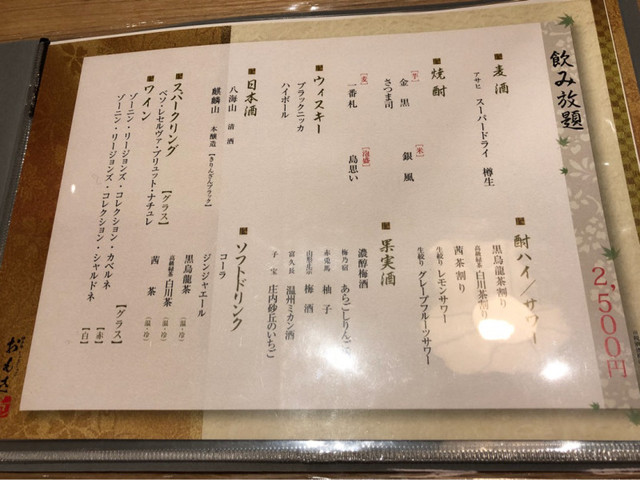 飲み放題
2,500円
麦酒
アサヒ スーパードライ 樽生
焼酎
【芋】
金黒
さつま司
【米】
銀風
【麦】
一番札
【泡盛】
島思い
ウィスキー
ブラックニッカ
ハイボール
日本酒
八海山 清酒
麒麟山 本醸造【きりんざんブラック】
スパークリング
ベソ・レセルヴァ・ブリュット・ナチュレ 【グラス】
ワイン
ゾーニン・リージョンズ・コレクション・カベルネ 【グラス】【赤】
ゾーニン・リージョンズ・コレクション・シャルドネ 【白】
酎ハイ／サワー
黒烏龍茶割り
高級緑茶 白川茶割り
茜茶割り
生絞り レモンサワー
生絞り グレープフルーツサワー
果実酒
濃醇梅酒
梅乃宿 あらごしりんご
赤兎馬 柚子
山形正宗 梅酒
富久長 温州ミカン酒
子宝 庄内砂丘のいちご
ソフトドリンク
コーラ
ジンジャエール
黒烏龍茶 【温・冷】
高級緑茶 白川茶 【温・冷】
茜茶 【温・冷】